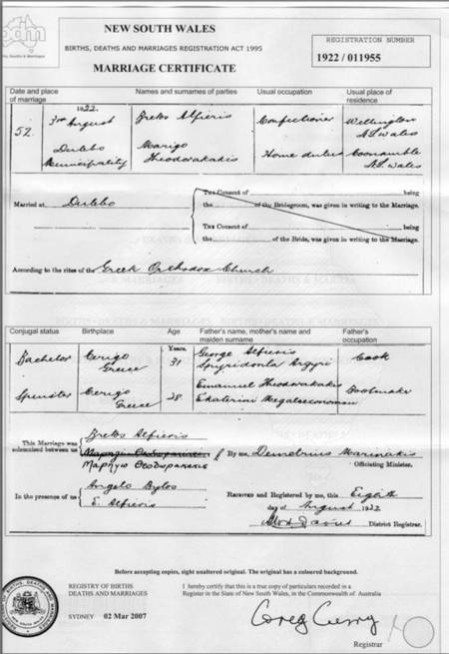 NEW SOUTH WALES
BIRTHS, DEATHS AND MARRIAGES REGISTRATION ACT 1995
MARRIAGE CERTIFICATE
REGISTRATION NUMBER
1922 / 011955
Date and place of marriage
Names and surnames of parties
Usual occupation
Usual place of residence
52.
1922.
3rd August
Dubbo
Municipality
Fretos Alfieris
Confectioner
Wellington
N.S. Wales
Marigo
Theodorakakis
Home duties
Coonamble
N.S. Wales
Married at Dubbo
The Consent of being
the of the Bridegroom, was given in writing to the Marriage.
The Consent of being
the of the Bride, was given in writing to the Marriage.
According to the rites of the Greek Orthodox Church
Conjugal status
Birthplace
Age
Father's name, mother's name and maiden surname
Father's occupation
Years.
Bachelor
Cerigo
Greece
31
George Alfieris
Argyri
Cook
Spinster
Cerigo
Greece
28
Emanuel Theodorakakis
Ekaterini
Bootmaker
This Marriage was solemnized between us
Fretos Alfieris
By me, Demetrius Marinakis
Officiating Minister.
In the presence of us
Angelo
E. Alfieris
Received and Registered by me, this Eighth
August 1922
District Registrar.
Before accepting copies, sight unaltered original. The original has a coloured background.
REGISTRY OF BIRTHS
DEATHS AND MARRIAGES
I hereby certify that this is a true copy of particulars recorded in a
Register in the State of New South Wales, in the Commonwealth of Australia
SYDNEY 02 Mar 2007
Greg Curry
Registrar